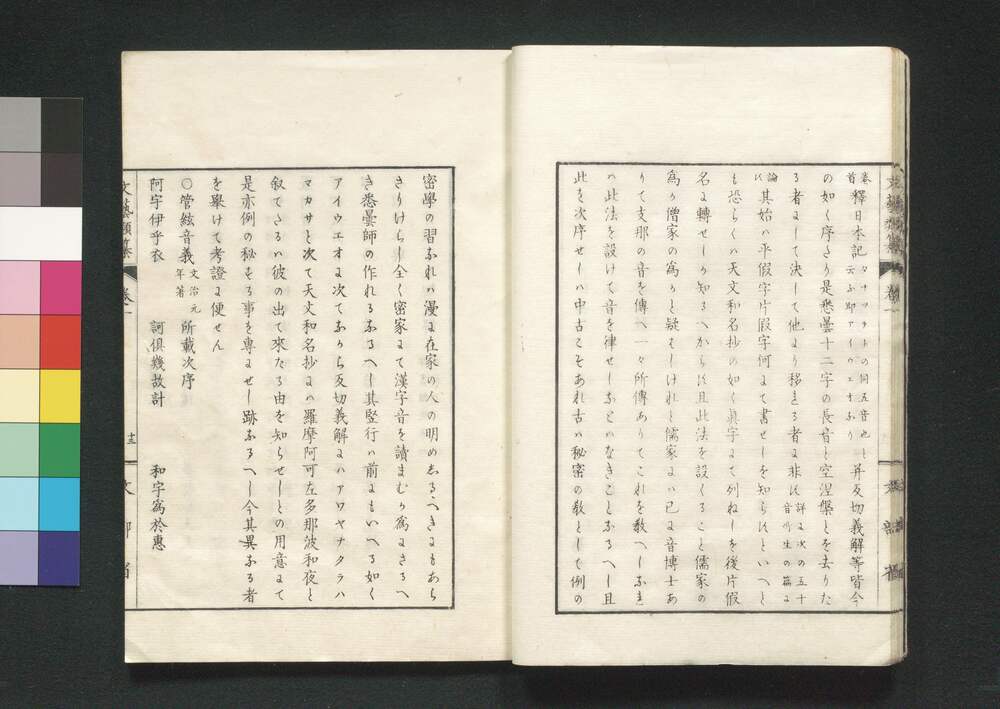 卷首 釋日本記 タナワラトの何五音也と云ふ即アイウエオふり 幷反切義解等皆今
の如く序さり是悉曇十二字の長音と空涅槃とを去りた
る者にして決して他より移まる者に非ば 詳に次の五十音所生の篇に論ば
其始ハ平假字片假字何にて書せーを知らばといへと
も恐らくハ天文和名抄の如く眞字にて列ねーを後片假
名に轉せーか知るへからば且此法を設くること儒家の
爲か僧家の爲かと疑もーけれと儒家にハ已に音博士あ
りて支那の音を傳へ一々所傳ありてこれを敎へーふま
ハ此法を設けて音を律せーふとハなきことふるへー且
此を次序せーハ中古こそあれ古ハ秘密の敎として例の
密學の習ふれハ漫に在家の人の明めしるへきにもあら
さりけらー全く密家にて漢字音を讀まむか爲にさるへ
き悉曇師の作れるふるへー其竪行ハ前にもいへる如く
アイウエオに次てふから反切義解にハアワヤナタラハ
マカサと次て天文和名抄にハ羅摩阿可左多那波和夜と
叙てたるハ彼の出て來たる由を知らせーとの用意にて
是亦例の秘もる事を專にせー跡ふるへー今其異ふる者
を擧けて考證に便せん
〇管絃音義 文治元年著 所載次序
阿字伊乎衣 訶俱幾故計 和字爲於惠
文藝類纂 卷一 十三 文部省